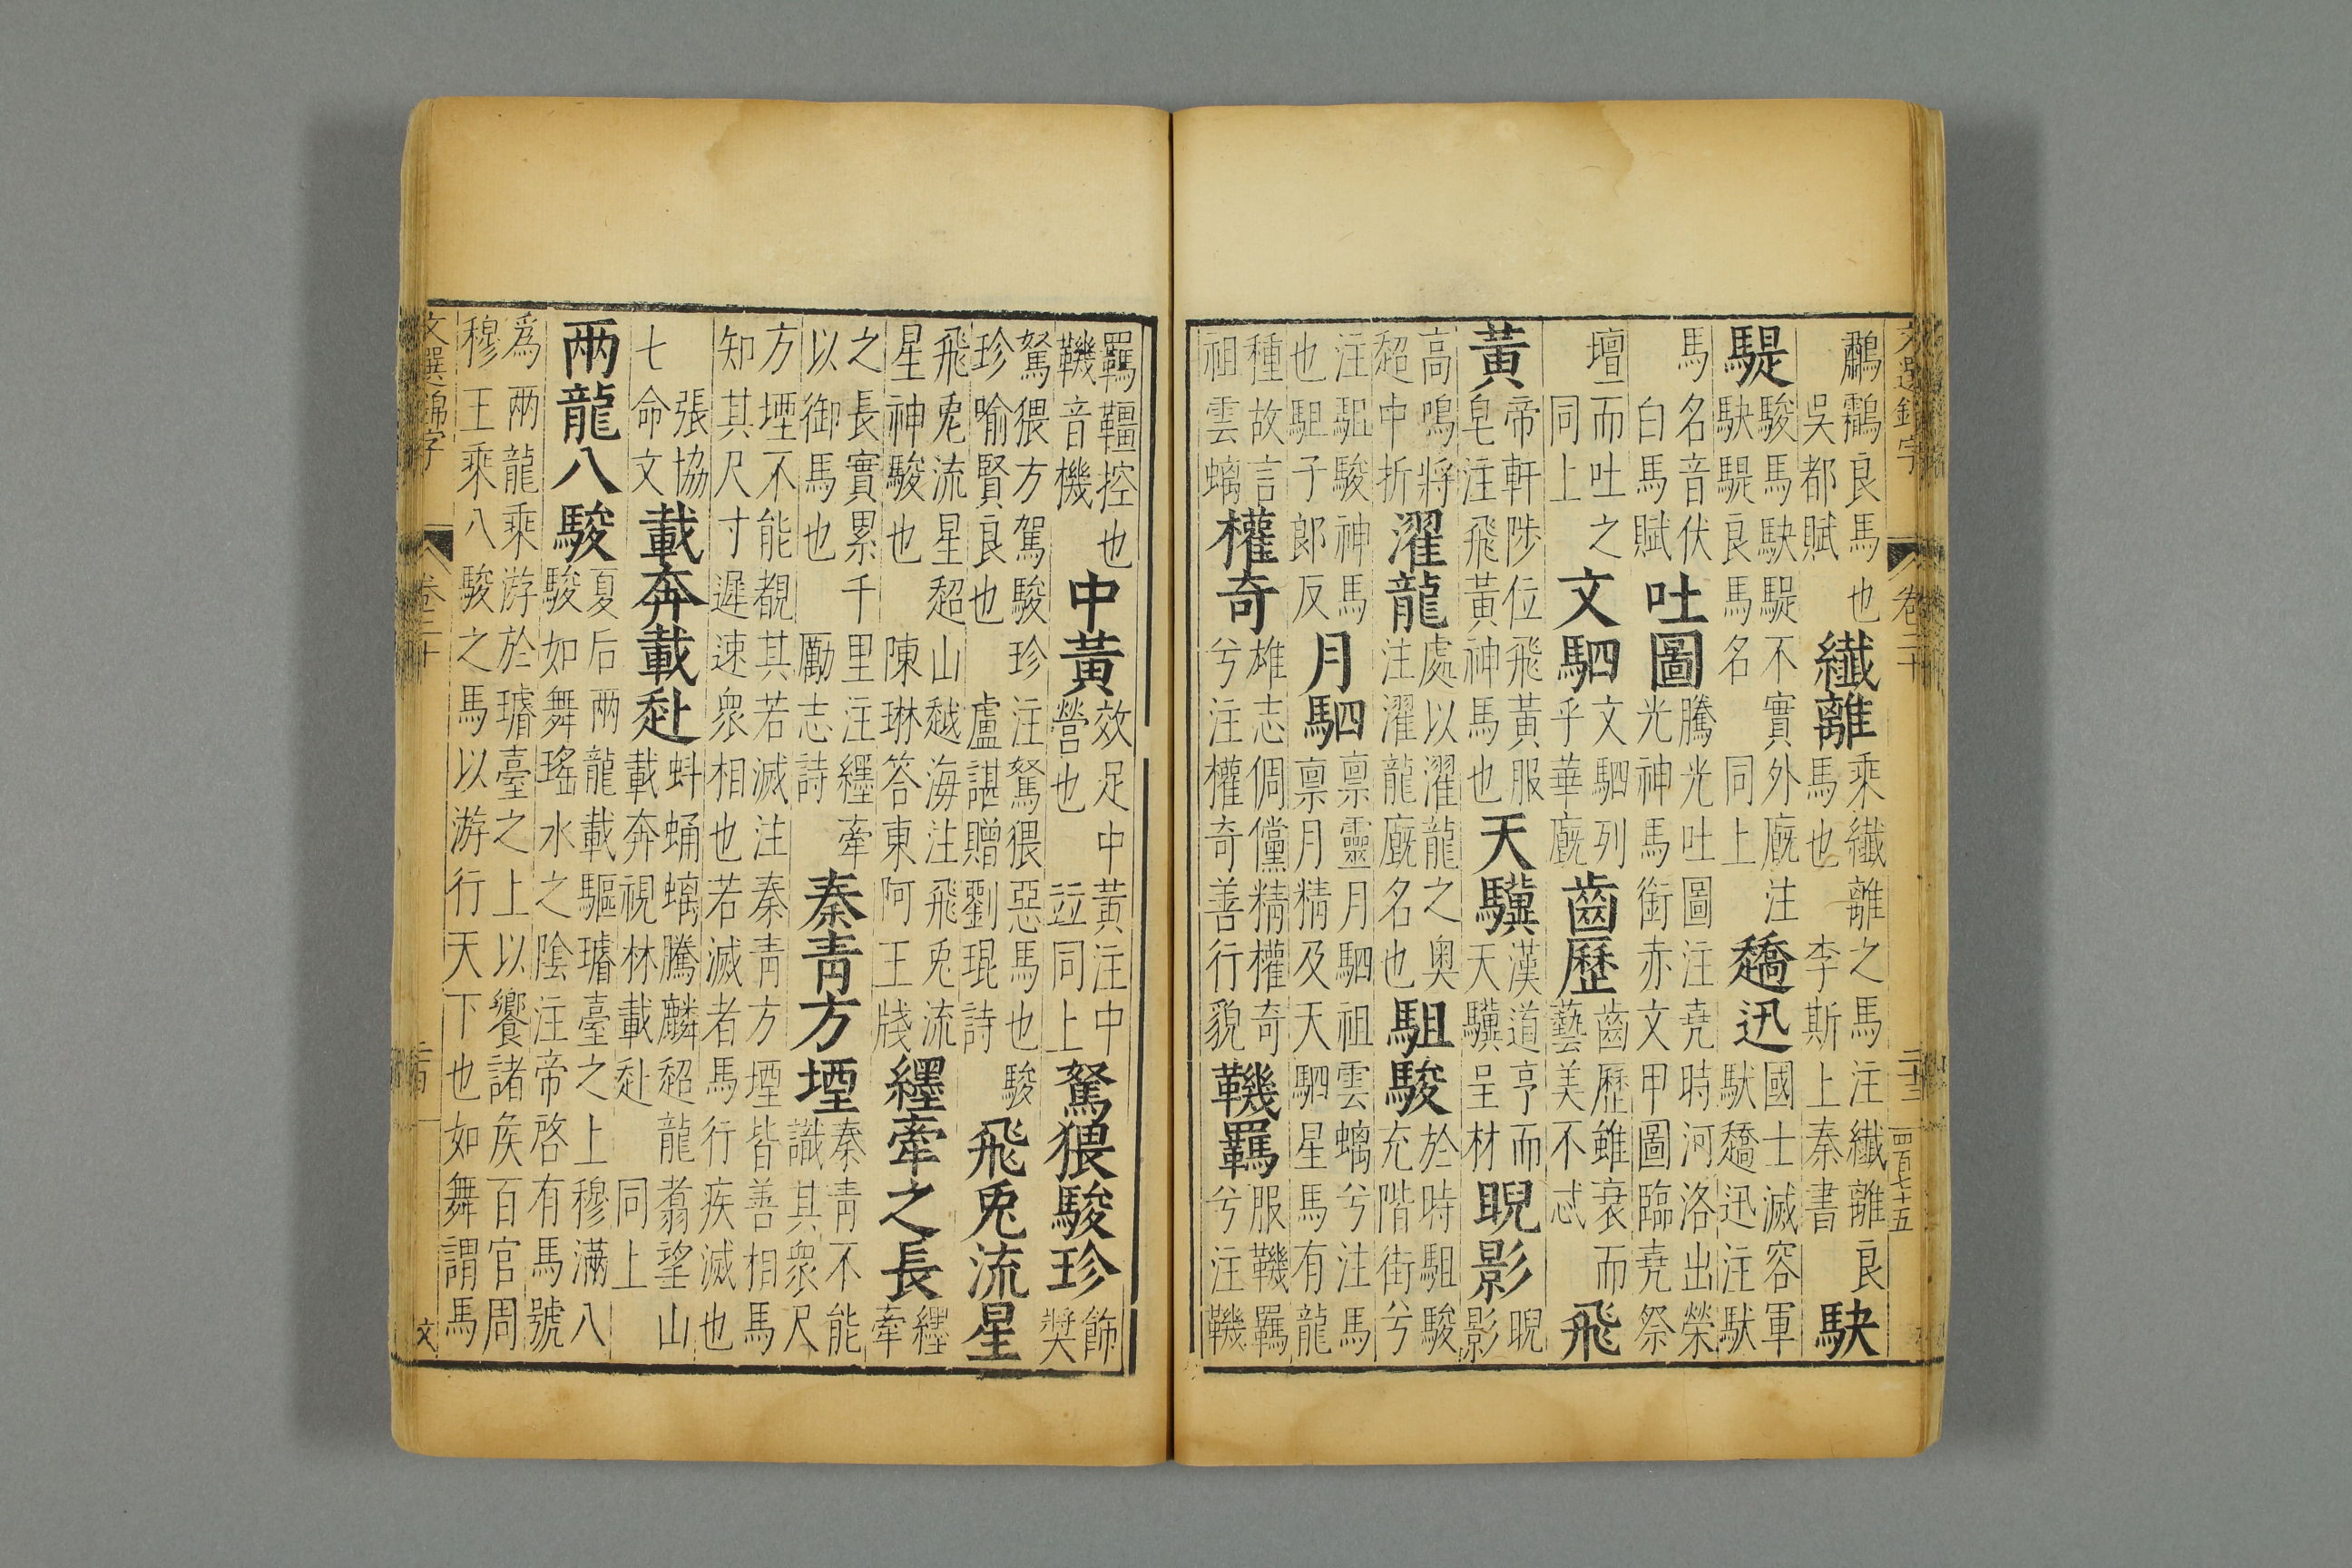 文選錦字 卷二十 二十三 四百七十五
鷫鸘良馬也
吳都賦
纖離
乘纖離之馬注纖離良
馬也 李斯上秦書
駃
騠
駿馬駃騠不實外廐注
駃騠良馬名 同上
趫迅
國士滅容軍
馱趫迅注馱
馬名音伏
白馬賦
吐圖
騰光吐圖注堯時河洛出榮
光神馬銜赤文甲圖臨堯祭
壇而吐之
同上
文駟
文駟列
乎華廐
齒歷
齒歷雖衰而
藝美不忒
飛
黃
帝軒陟位飛黃服
皂注飛黃神馬也
天驥
漢道亨而
天驥呈材
睨影
睨
影
高鳴將
超中折
濯龍
處以濯龍之奥
注濯龍廐名也
駔駿
於時駔駿
充階街兮
注駔駿神馬
也駔子郎反
月駟
禀靈月駟祖雲螭兮注馬
禀月精及天駟星馬有龍
種故言
祖雲螭
權奇
雄志倜儻精權奇
兮注權奇善行貌
鞿羈
服鞿羈
兮注鞿
羈韁控也
鞿音機
中黃
效足中黃注中
營也 竝同上
駑猥駿珍
飾
奬
駑猥方駕駿珍注駑猥惡馬也駿
珍喻賢良也 盧諶贈劉琨詩
飛兎流星
飛兎流星超山越海注飛兎流
星神駿也 陳琳答東阿王牋
纆牽之長
纆
牽
之長實累千里注纆牽
以御馬也 勵志詩
秦青方堙
秦青不能
識其衆尺
方堙不能覩其若滅注秦青方堙皆善相馬
知其尺寸遲速衆相也若滅者馬行疾滅也
張協
七命文
載奔載赴
蚪蛹螭騰麟超龍翥望山
載奔視林載赴 同上
兩龍八駿
夏后兩龍載驅璿臺之上穆滿八
駿如舞瑤水之陰注帝啓有馬號
爲兩龍乘游於璿臺之上以饗諸矦百官周
穆王乘八駿之馬以游行天下也如舞謂馬
文選錦字 卷二十 文